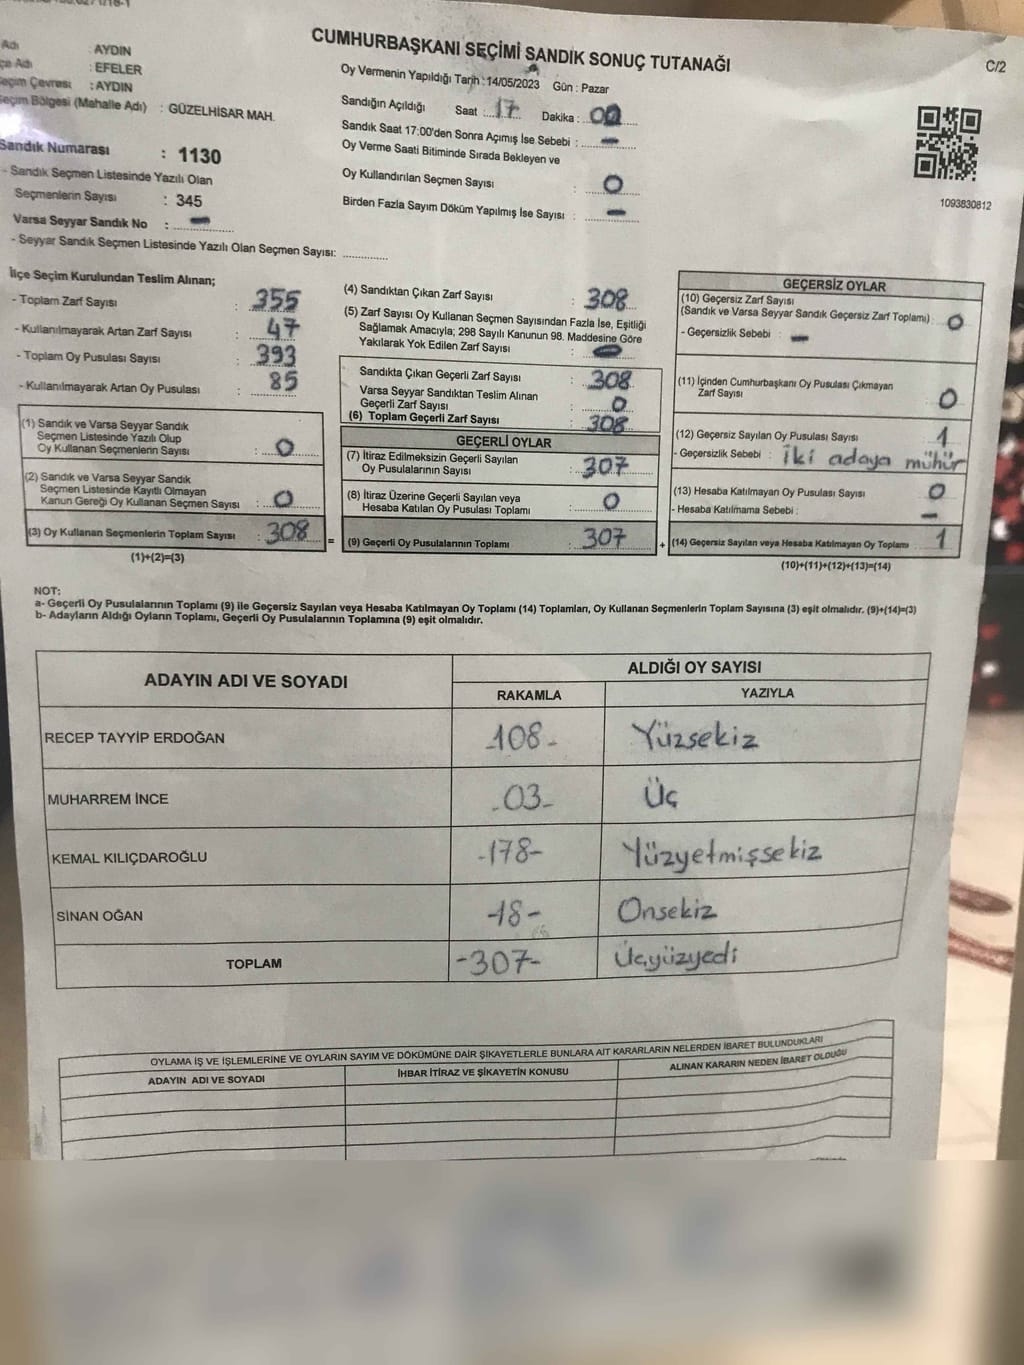 CUMHURBAŞKANI SEÇİMİ SANDIK SONUÇ TUTANAĞI
C/2
Adı : AYDIN
çe Adı : EFELER
eçim Çevresi : AYDIN
eçim Bölgesi (Mahalle Adı) : GÜZELHİSAR MAH.
Sandık Numarası : 1130
- Sandık Seçmen Listesinde Yazılı Olan
Seçmenlerin Sayısı : 345
Varsa Seyyar Sandık No : -
- Seyyar Sandık Seçmen Listesinde Yazılı Olan Seçmen Sayısı: ..............
Oy Vermenin Yapıldığı Tarih : 14/05/2023 Gün : Pazar
Sandığın Açıldığı Saat : 17 Dakika : 00
Sandık Saat 17:00'den Sonra Açımış İse Sebebi : -
Oy Verme Saati Bitiminde Sırada Bekleyen ve
Oy Kullandırılan Seçmen Sayısı : 0
Birden Fazla Sayım Döküm Yapılmış İse Sayısı : -
1093830812
İlçe Seçim Kurulundan Teslim Alınan;
- Toplam Zarf Sayısı : 355
- Kullanılmayarak Artan Zarf Sayısı : 47
- Toplam Oy Pusulası Sayısı : 393
- Kullanılmayarak Artan Oy Pusulası : 85
(1) Sandık ve Varsa Seyyar Sandık
Seçmen Listesinde Yazılı Olup
Oy Kullanan Seçmenlerin Sayısı : 0
(2) Sandık ve Varsa Seyyar Sandık
Seçmen Listesinde Kayıtlı Olmayan
Kanun Gereği Oy Kullanan Seçmen Sayısı : 0
(3) Oy Kullanan Seçmenlerin Toplam Sayısı : 308 =
(1)+(2)=(3)
(4) Sandıktan Çıkan Zarf Sayısı : 308
(5) Zarf Sayısı Oy Kullanan Seçmen Sayısından Fazla İse, Eşitliği
Sağlamak Amacıyla; 298 Sayılı Kanunun 98. Maddesine Göre
Yakılarak Yok Edilen Zarf Sayısı :
Sandıkta Çıkan Geçerli Zarf Sayısı : 308
Varsa Seyyar Sandıktan Teslim Alınan
Geçerli Zarf Sayısı : 0
(6) Toplam Geçerli Zarf Sayısı : 308
GEÇERLİ OYLAR
(7) İtiraz Edilmeksizin Geçerli Sayılan
Oy Pusulalarının Sayısı : 307
(8) İtiraz Üzerine Geçerli Sayılan veya
Hesaba Katılan Oy Pusulası Toplamı : 0
(9) Geçerli Oy Pusulalarının Toplamı : 307 +
GEÇERSİZ OYLAR
(10) Geçersiz Zarf Sayısı
(Sandık ve Varsa Seyyar Sandık Geçersiz Zarf Toplamı) : 0
- Geçersizlik Sebebi : -
(11) İçinden Cumhurbaşkanı Oy Pusulası Çıkmayan
Zarf Sayısı : 0
(12) Geçersiz Sayılan Oy Pusulası Sayısı : 1
- Geçersizlik Sebebi : İki adaya mühür
(13) Hesaba Katılmayan Oy Pusulası Sayısı : 0
- Hesaba Katılmama Sebebi : -
(14) Geçersiz Sayılan veya Hesaba Katılmayan Oy Toplamı : 1
(10)+(11)+(12)+(13)=(14)
NOT:
a- Geçerli Oy Pusulalarının Toplamı (9) ile Geçersiz Sayılan veya Hesaba Katılmayan Oy Toplamı (14) Toplamları, Oy Kullanan Seçmenlerin Toplam Sayısına (3) eşit olmalıdır. (9)+(14)=(3)
b- Adayların Aldığı Oyların Toplamı, Geçerli Oy Pusulalarının Toplamına (9) eşit olmalıdır.
ADAYIN ADI VE SOYADI ALDIĞI OY SAYISI
RAKAMLA YAZIYLA
RECEP TAYYİP ERDOĞAN -108- Yüzsekiz
MUHARREM İNCE -03- Üç
KEMAL KILIÇDAROĞLU -178- Yüzyetmişsekiz
SİNAN OĞAN -18- Onsekiz
TOPLAM -307- Üçyüzyedi
OYLAMA İŞ VE İŞLEMLERİNE VE OYLARIN SAYIM VE DÖKÜMÜNE DAİR ŞİKAYETLERLE BUNLARA AİT KARARLARIN NELERDEN İBARET BULUNDUKLARI
ADAYIN ADI VE SOYADI İHBAR İTİRAZ VE ŞİKAYETİN KONUSU ALINAN KARARIN NEDEN İBARET OLDUĞU